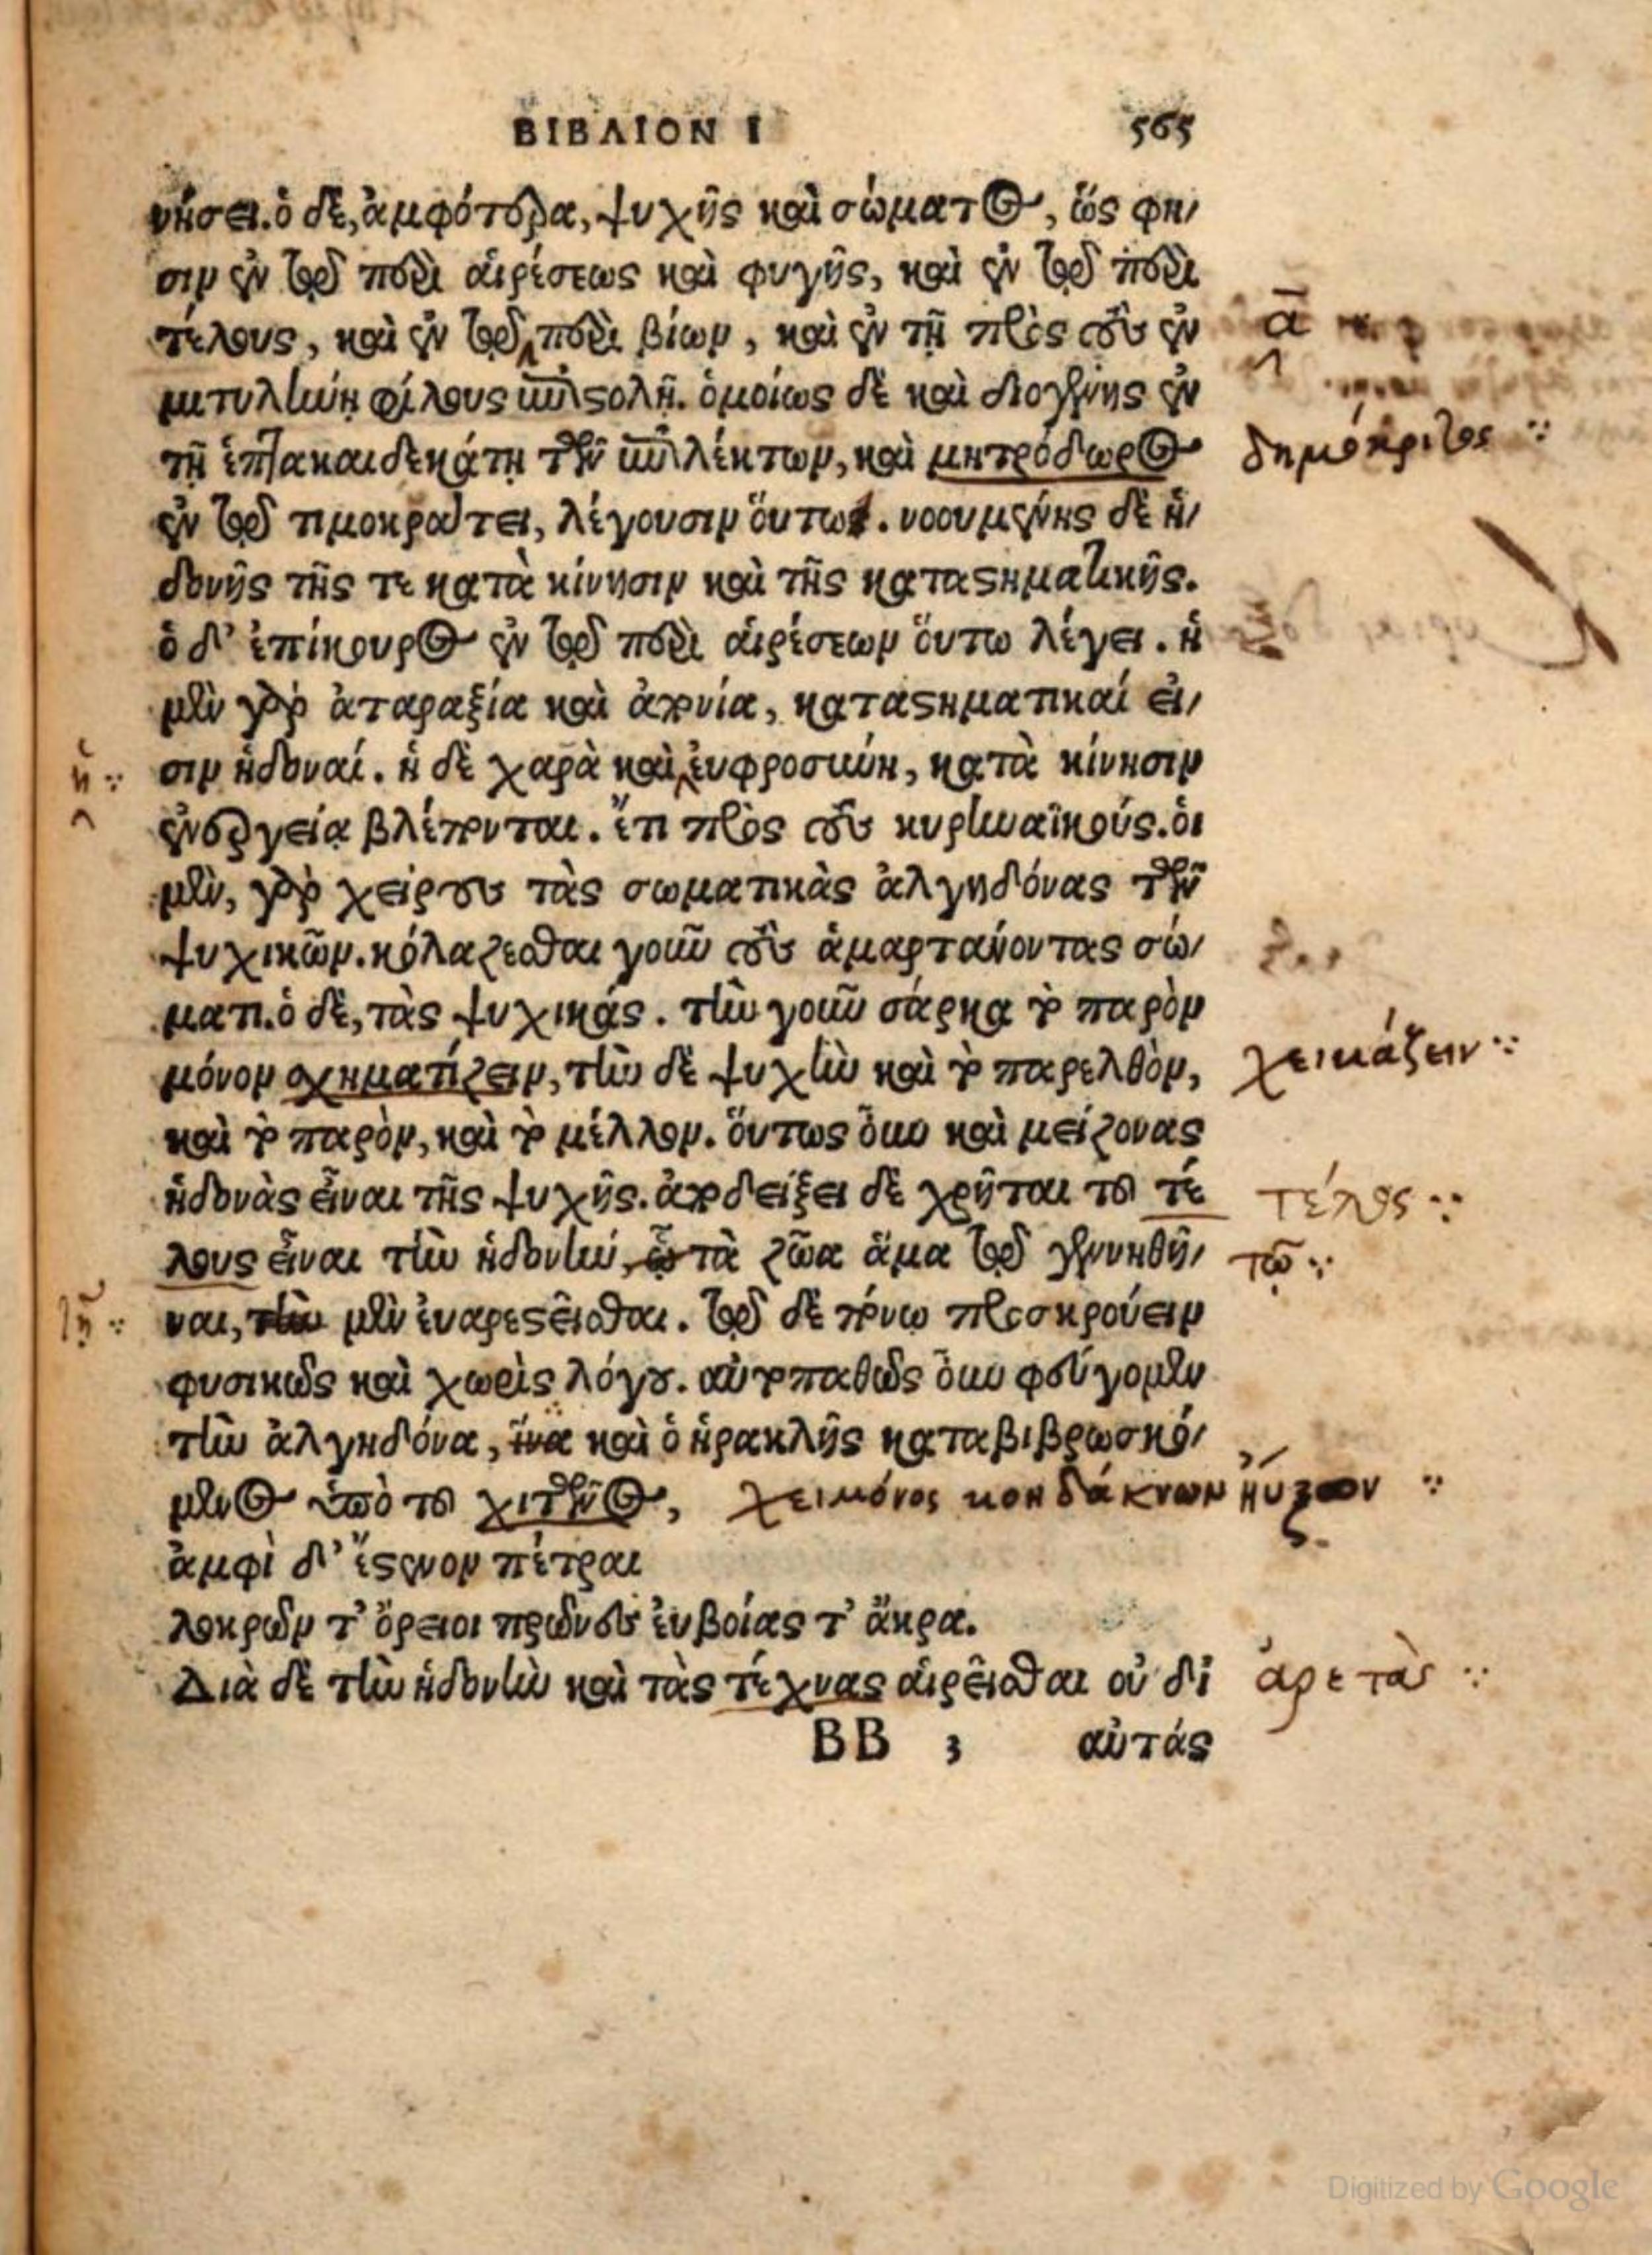 ΒΙΒΛΙΟΝ Ι 565
νήσει. ὁ δὲ, ἀμφότερα, ψυχῆς καὶ σώματος, ὥς φη/
σιν ἐν τῷ περὶ αἱρέσεως καὶ φυγῆς, καὶ ἐν τῷ περὶ
τέλους, καὶ ἐν τῷ περὶ βίων, καὶ ἐν τῇ πρὸς τοὺς ἐν α
μιτυλήνῃ φίλους ἐπιστολῇ. ὁμοίως δὲ καὶ διογένης ἐν
τῇ ἑπτακαιδεκάτῃ τῶν ἐπιλέκτων, καὶ μητρόδωρος δημόκριτος
ἐν τῷ τιμοκράτει, λέγουσιν ὅυτω. νοουμένης δὲ ἡ/
δονῆς τῆς τε κατὰ κίνησιν καὶ τῆς καταστηματικῆς.
ὁ δ' ἐπίκουρος ἐν τῷ περὶ αἱρέσεων ὅυτω λέγει. ἡ
μὲν γὰρ ἀταραξία καὶ ἀπονία, καταστηματικαί εἰ/
ἡ σιν ἡδοναί. ἡ δὲ χαρὰ καὶ ἐυφροσύνη, κατὰ κίνησιν
ἐνεργείᾳ βλέπονται. ἔτι πρὸς τοὺς κυρηναϊκούς. ὁι
μὲν, γὰρ χείρους τὰς σωματικὰς ἀλγηδόνας τῶν
ψυχικῶν. κόλαζεσθαι γοῦν τοὺς ἁμαρτάνοντας σώ/
ματι. ὁ δὲ, τὰς ψυχικάς. τὴν γοῦν σάρκα τὸ παρὸν
μόνον σχηματίζειν, τὴν δὲ ψυχὴν καὶ τὸ παρελθὸν, χειμάζειν
καὶ τὸ παρὸν, καὶ τὸ μέλλον. ὅυτως ὂυν καὶ μείζονας
ἡδονὰς εἶναι τῆς ψυχῆς. ἀποδείξει δὲ χρῆται τοῦ τέ τέλος
λους εἶναι τὴν ἡδονὴν, ὦ τὰ ζῶα ἅμα τῷ γεννηθῆ/ τῷ
ναι, τὴν μὲν ἐυαρεστεῖσθαι. τῷ δὲ πόνῳ προσκρούειν
φυσικῶς καὶ χωρὶς λόγου. αὐτοπαθῶς ὂυν φεύγομεν
τὴν ἀλγηδόνα, ἵνα καὶ ὁ ἡρακλῆς καταβιβρωσκό/
μενος ὑπὸ τοῦ χιτῶνος,
ἀμφὶ δ' ἔστενον πέτραι
λοκρῶν τ' ὄρειοι πρῶνες ἐυβοίας τ' ἄκρα.
Διὰ δὲ τὴν ἡδονὴν καὶ τὰς τέχνας αἱρεῖσθαι οὐ δι ἀρετὰς
BB 3 αὐτάς
Digitized by Google